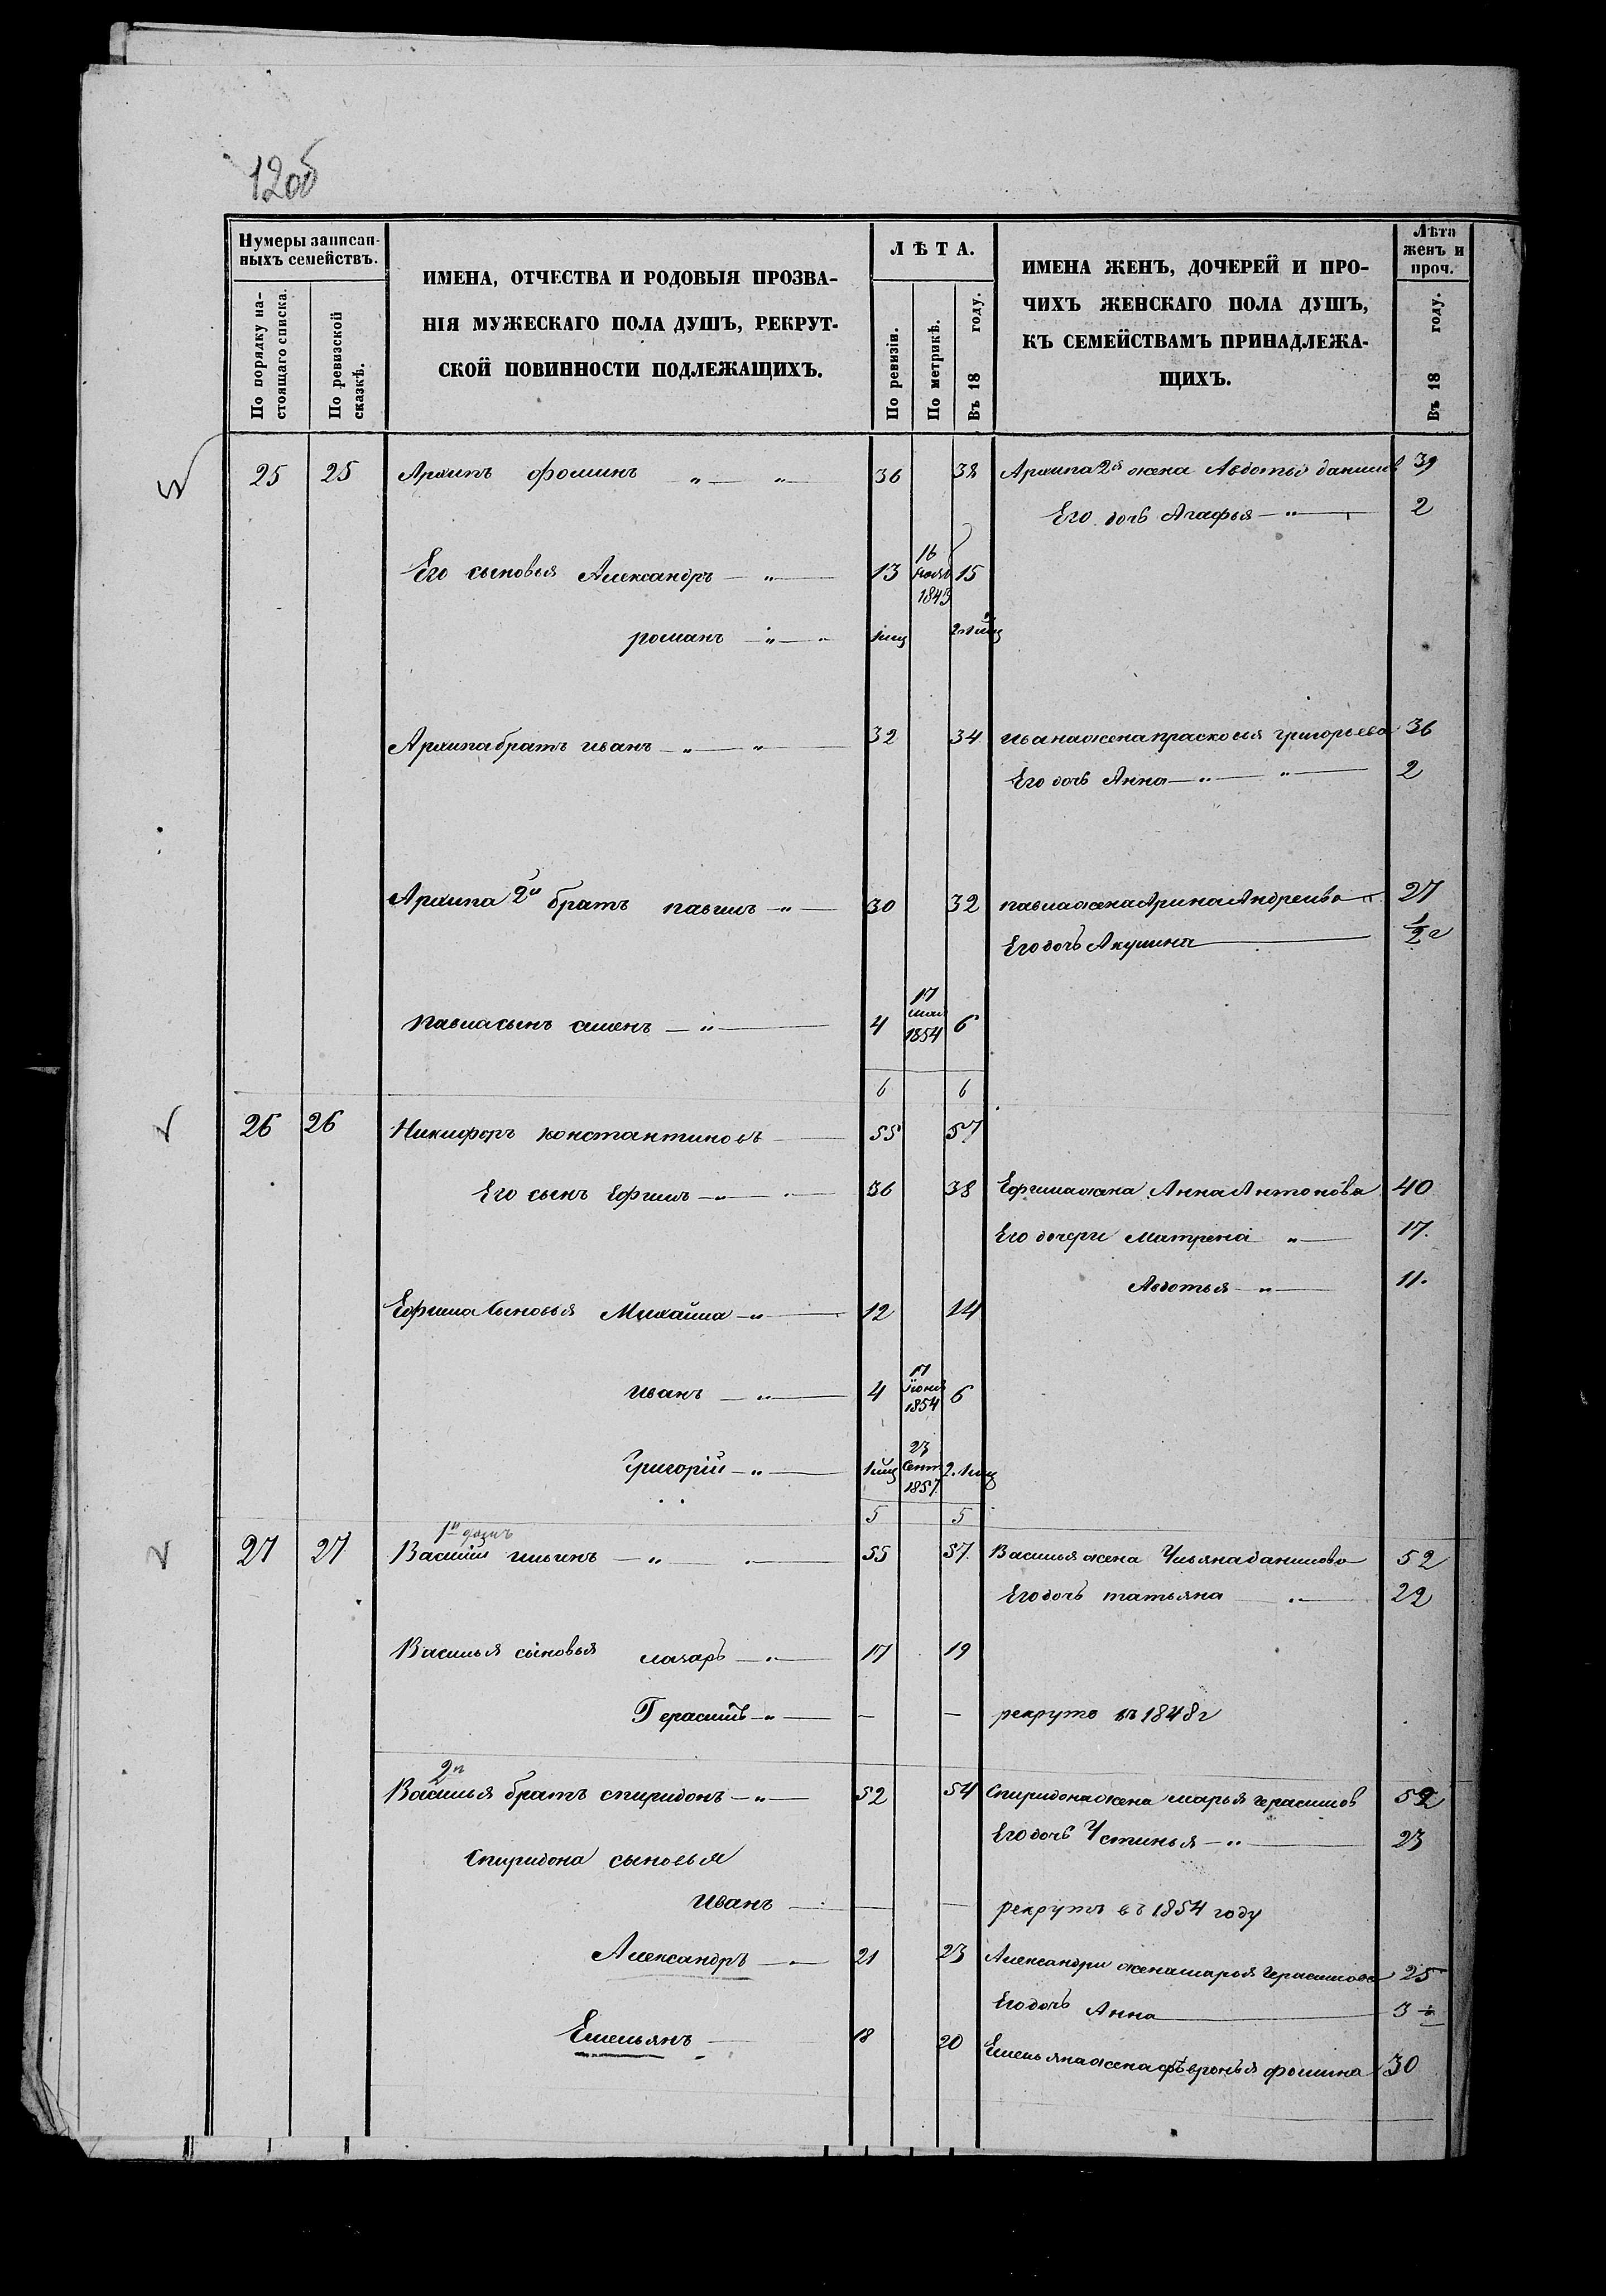 120б
Нумеры записан-
ныхъ семействъ.
По порядку на-
стоящаго списка.
По ревизской
сказкѣ.
ИМЕНА, ОТЧЕСТВА И РОДОВЫЯ ПРОЗВА-
НІЯ МУЖЕСКАГО ПОЛА ДУШЪ, РЕКРУТ-
СКОЙ ПОВИННОСТИ ПОДЛЕЖАЩИХЪ.
ЛѢТА.
По ревизіи.
По метрикѣ.
Въ 18 году.
ИМЕНА ЖЕНЪ, ДОЧЕРЕЙ И ПРО-
ЧИХЪ ЖЕНСКАГО ПОЛА ДУШЪ,
КЪ СЕМЕЙСТВАМЪ ПРИНАДЛЕЖА-
ЩИХЪ.
Лѣта
женъ и
проч.
Въ 18 году.
25 25 Архипъ фоминъ „ — „ — 36 38 Архипа 2я жена Авдотья данилов 39
Его дочь Агафья — „ — 2
Его сыновья Александръ — „ — 13 16 нояб 1843 15
романъ — „ — „ 1 мц 2 1 мц
Архипа братъ иванъ — „ — „ — 32 34 ивана жена прасковья григорьева 36
Его дочь Анна — „ — „ — 2
Архипа 2й братъ павилъ — „ — 30 32 павла жена Арина Андреива — „ 27
Его дочь Акулина — ½ г
павла сынъ сименъ — „ — 4 17 мая 1854 6
6 6
26 26 Никифоръ константиновъ — 55 57
Его сынъ Ефимъ — „ — 36 38 Ефима жена Анна Антонова 40
Его дочери матрена „ — 17.
Авдотья — „ — 11.
Ефима сыновья Михаила — „ — 12 14
иванъ — „ — 4 17 іюня 1854 6
Григорій — „ — 1 мц 23 Сент 1857 2. 1 мц
5 5
1й домъ
27 27 Василій ильинъ — „ — 55 57. Василья жена Ульяна данилова 52
Его дочь татьяна — „ — 22
Василья сыновья лазарь — „ — 17 19
Герасимъ — „ — — — рекрутъ въ 1848 г
2й
Василья братъ спиридонъ — „ — 52 54 Спиридона жена марья герасимов 52
Его дочь Устинья — „ — 23
Спиридона сыновья
Иванъ — — — рекрутъ въ 1854 году
Александръ — „ — 21 23 Александри жена марья Герасимова 25
Его дочь Анна — 3
Емельянъ — 18 20 Емельяна жена февронья фомина 30